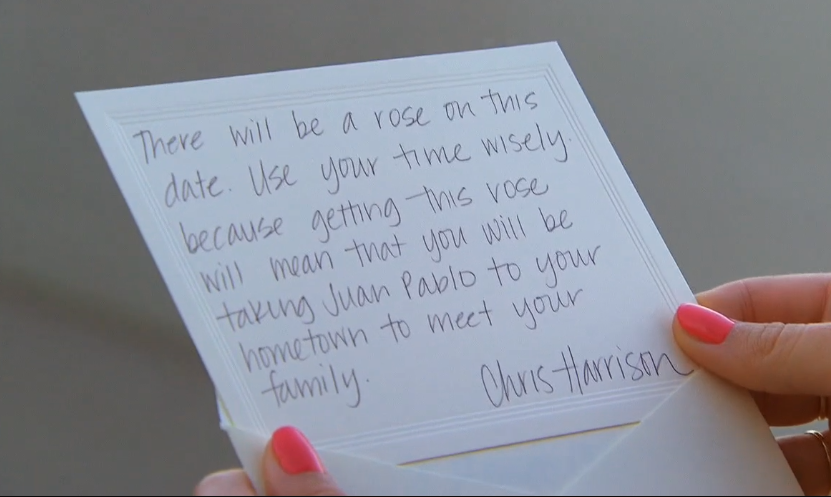 There will be a rose on this
date. Use your time wisely.
because getting this rose
will mean that you will be
taking Juan Pablo to your
hometown to meet your
family.
Chris Harrison